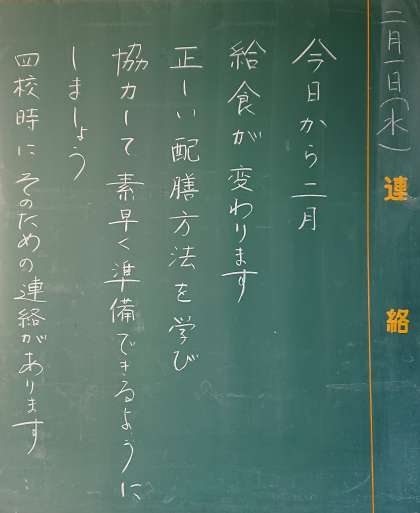 二月一日(水)
連絡
今日から二月
給食が変わります
正しい配膳方法を学び
協力して素早く準備できるように
しましょう
四校時にそのための連絡があります…